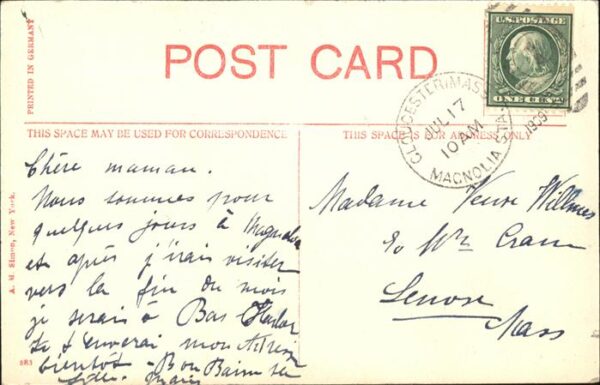 PRINTED IN GERMANY
POST CARD
U.S. POSTAGE
ONE CENT
GLOUCESTER, MASS
JUL 17
10 AM
1909
MAGNOLIA STA.
THIS SPACE MAY BE USED FOR CORRESPONDENCE
THIS SPACE IS FOR ADDRESS ONLY
A. M. Simon, New York.
Chère maman.
Nous sommes pour
quelques jours à Magnolia
et après j'irais visiter
vers la fin du mois
je serais à Bar Harbor
Je t'enverai mon adresse
bientôt - Bon Baiser
Madame Veuve Willmes
c/o Wm Crane
Lenox
Mass